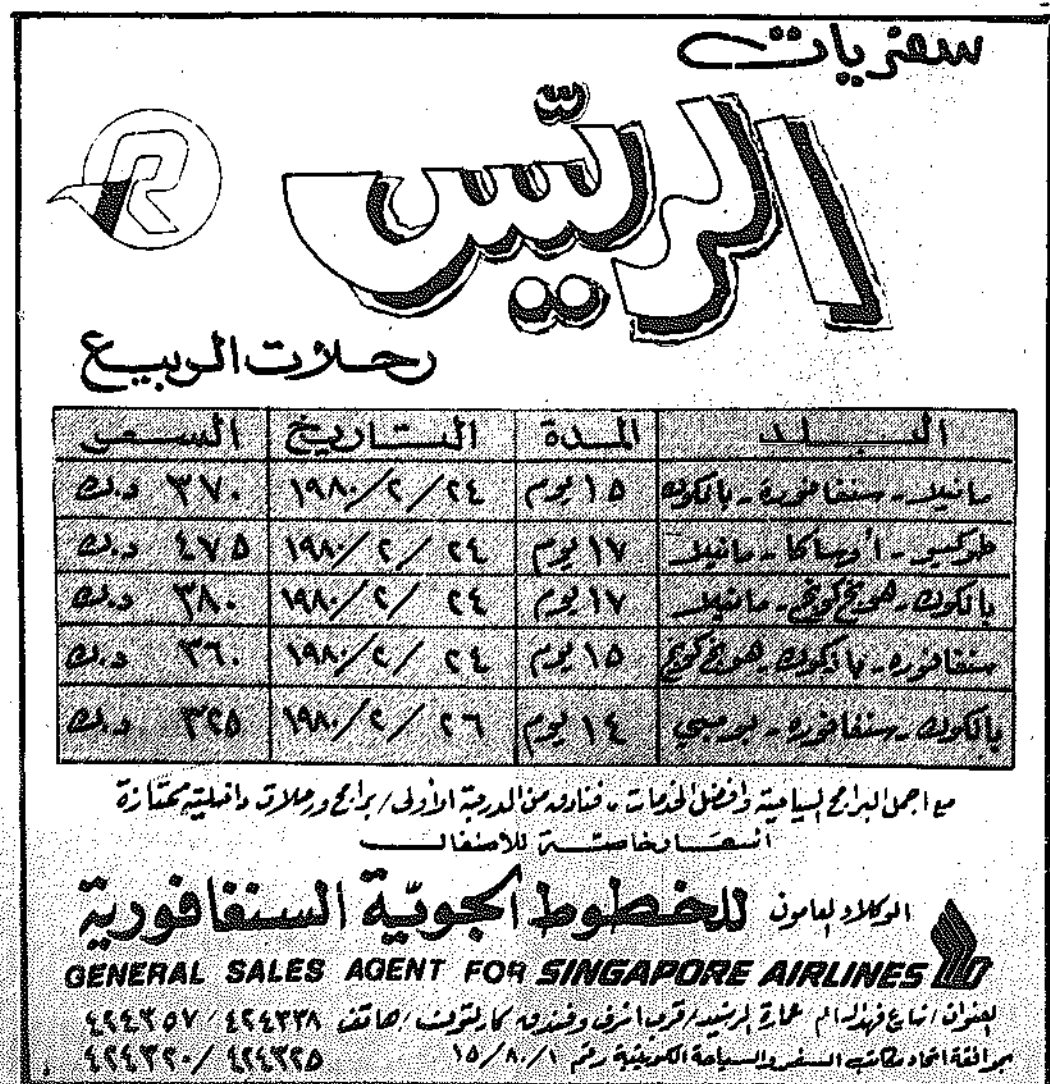 سفريات
الريّس
R
رحلات الربيع
البلد المدة التاريخ السعر
مانيلا - سنغافورة - بانكوك ١٥ يوم ٢٤ / ٢ / ١٩٨٠ ٣٧٠ د.ك
طوكيو - أوساكا - مانيلا ١٧ يوم ٢٤ / ٢ / ١٩٨٠ ٤٧٥ د.ك
بانكوك - هونج كونج - مانيلا ١٧ يوم ٢٤ / ٢ / ١٩٨٠ ٣٨٠ د.ك
سنغافوره - بانكوك - هونج كونج ١٥ يوم ٢٤ / ٢ / ١٩٨٠ ٣٦٠ د.ك
بانكوك - سنغافوره - بومبي ١٤ يوم ٢٦ / ٢ / ١٩٨٠ ٣٢٥ د.ك
مع اجمل البرامج السياحية وافضل الخدمات، فنادق من الدرجة الأولى / برامج ورحلات داخلية ممتازة
اسعار خاصة للأطفال
الوكلاء العامون للخطوط الجوية السنغافورية
GENERAL SALES AGENT FOR SINGAPORE AIRLINES
العنوان / شارع فهد السالم عمارة الرشيد / قرب شرف وفندق كارلتون / هاتف ٤٢٤٣٣٨ / ٤٢٤٣٥٧
بموافقة اتحاد مكاتب السفر والسياحة الكويتية رقم ١ / ٨٠ / ١٥ ٤٢٤٣٢٥ / ٤٢٤٣٢٠